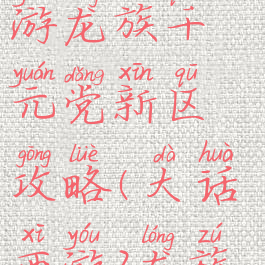 游龙族千
yuán dǎng xīn qū
元党新区
gōng lüè dà huà
攻略(大话
xī yóu lóng zú
西游)龙族